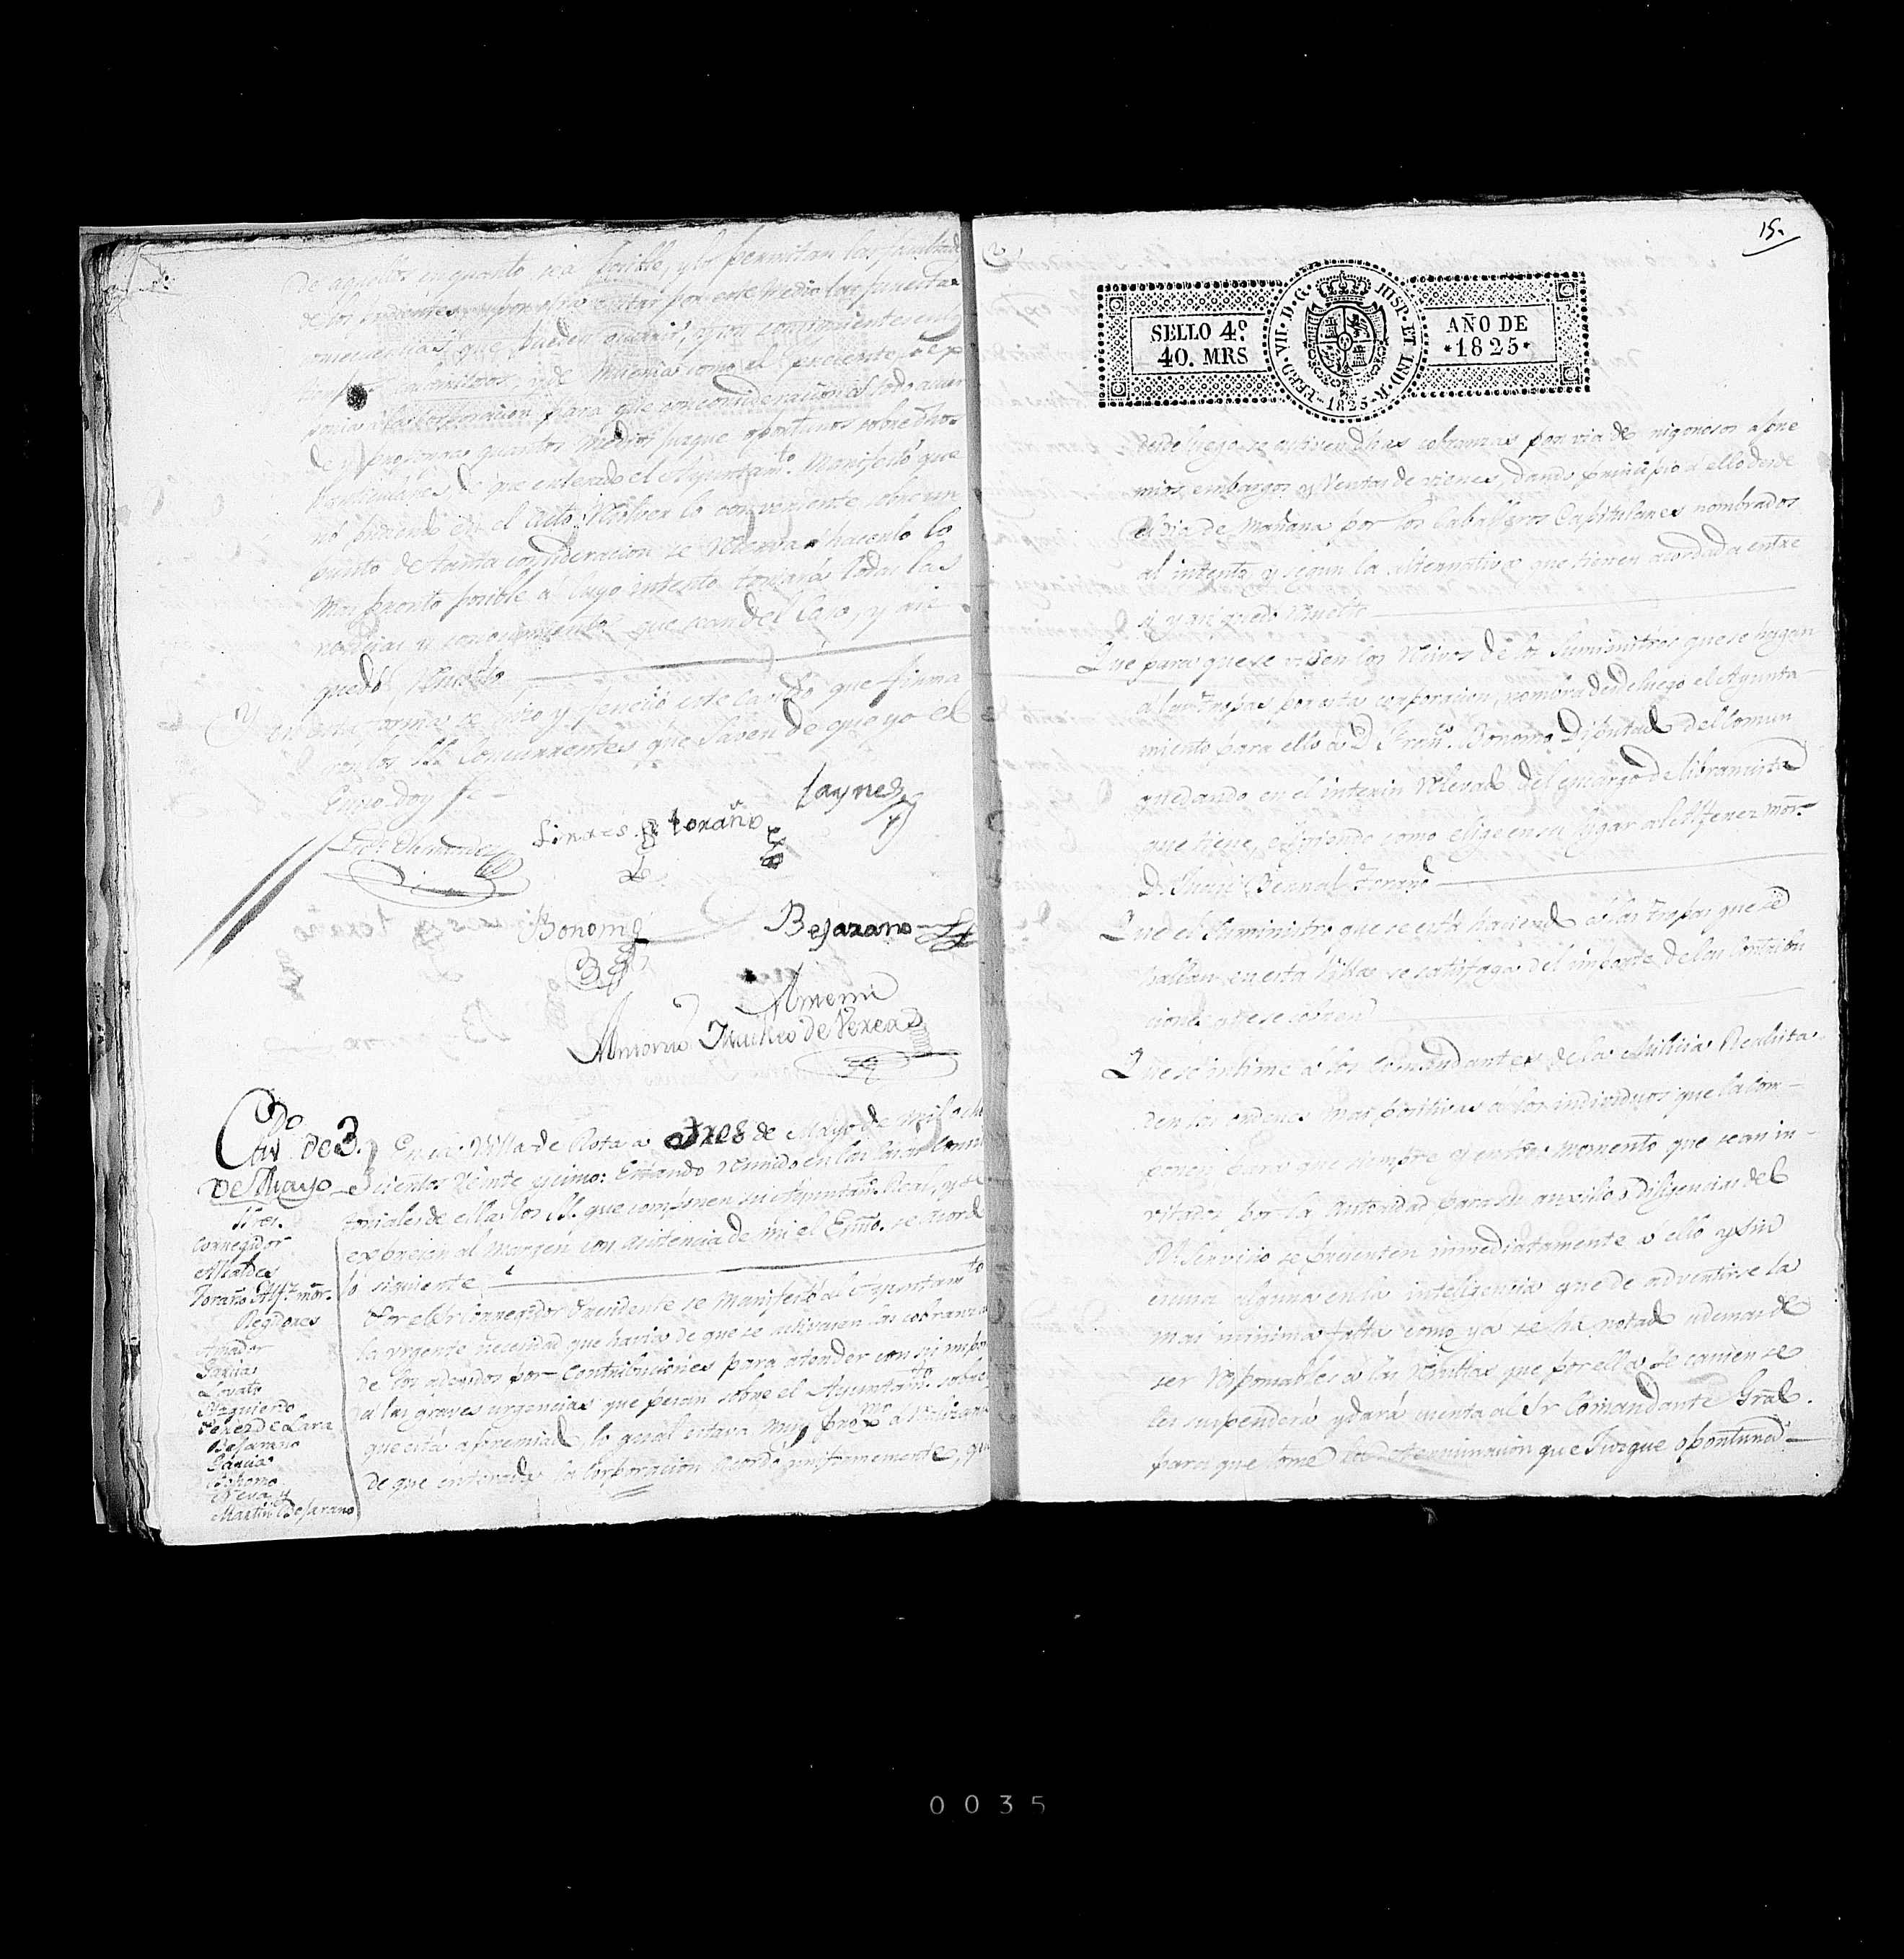 de aquellos en quanto sea posible, y lo permitan las facultades
de los
consecuencias que pueden
como el presente
la corporacion para que con consideracion a todo acuer
de y proponga quantos medios juzgue oportunos sobre dhos
particulares de que enterado el Ayuntamto. Manifestó que
no pudiendo en el acto resolver lo conveniente sobre un
punto de tanta consideracion se reserva hacerlo lo
mas pronto posible á cuyo intento tomará todas las
noticias y conocimientos que sean del caso, y asi
quedó resuelto
Y en esta forma se hizo y feneció este cavdo que firma
ron los SS. Concurrentes que saven de que yo el
Essno. doy fe
Linares
Toraño
Laynez
Bonomo
Bejarano
Antemi
Antonio de Verea
Cavdo. de 3.
de Mayo
Sres.
Corregidor
Alcaldes
Toraño Alfz. mor.
Regidores
Amador
Garcia
Lovato
Yzquierdo
Perez de Lara
Bejarano
Garcia
Bonomo
Neva y
Martin Bejarano
En la Villa de Rota a tres de Mayo de mil ocho
cientos veinte y cinco: Estando reunido en las Casas Capitu
toriales de ella los SS. que componen su Ayuntamo. Real, y se
expresan al margen con asistencia de mi el Essno. se acordó
lo siguiente
Por el Sr. Corregidor Presidente se manifestó al Ayuntamto
la urgente necesidad que havia de que se activasen las cobranzas
de los adeudos por Contribuciones para atender con su importe
a las graves urgencias que pesan sobre el Ayuntamto. sobre
que está apremiado, lo qual estava muy proxmo. a
de que enterada la Corporacion acordó uniformemente, que
15.
SELLO 4º.
40. MRS
FERD. VII. D. G. HISP. ET IND. R. 1825
AÑO DE
1825
desde luego se activen dhas cobranzas por via de rigorosos apre
mios, embargos y ventas de vienes, dando principio á ello desde
el dia de mañana por los Caballeros Capitulares nombrados
al intento y segun la alternativa que tienen acordada entre
si y asi quedó resuelto
Que para que se visen los recivos de los suministros que se hagan
a las tropas por esta corporacion, nombra desde luego el Ayunta
miento para ello a D. Franco. Bonomo Diputado del Comun
quedando en el interin relevado del encargo de librancista
que tiene, eligiendo como elige en su lugar al Alferez mor.
D. Juan Bernal Toraño
Que el suministro que se está haciendo a las tropas que se
hallan en esta Villa se satisfaga del importe de las contribu
ciones que se cobren
Que se intime a los Comandantes de la Milicia Realista
den las ordenes mas positivas á los individuos que la com-
ponen para que siempre y en todo momento que sean in-
vitados por la Autoridad para su auxilio, Diligencias del
Rl. Servicio se presenten inmediatamente á ello y sin
escusa alguna en la inteligencia que de advertirse la
mas minima falta como ya se ha notado ademas de
ser responsables a las resultas que por ellas se causen se
les suspenderá y dará cuenta al Sr. Comandante Gral.
para que tome la determinacion que Juzgue oportuna
0035